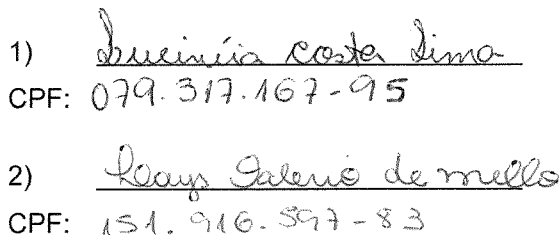 1) Lucinéia Costa Lima
CPF: 079.317.167-95
2) Valerio de mello
CPF: 151.916.597-83